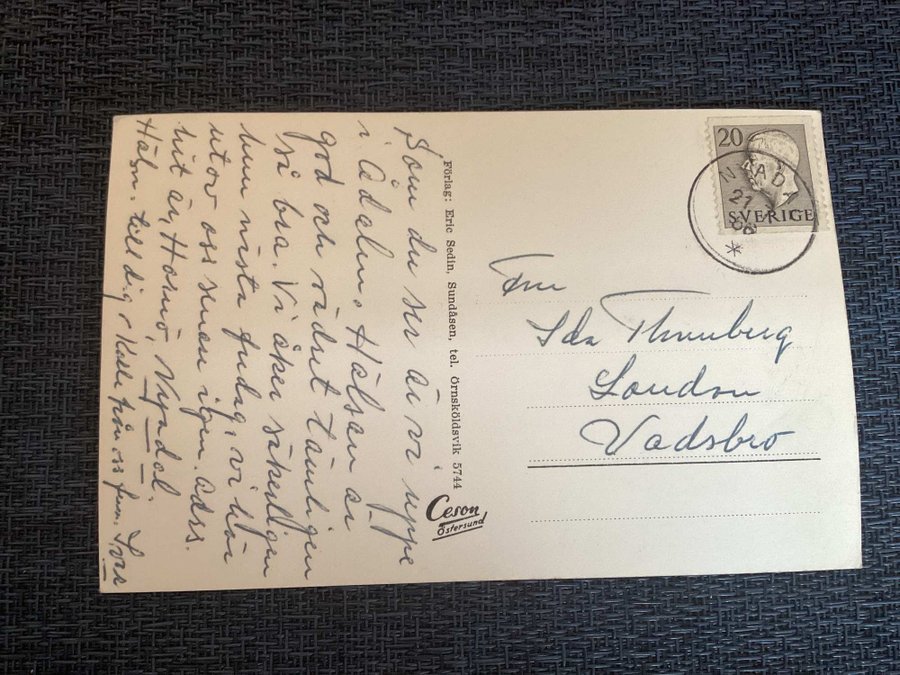 Som du ser är vi uppe
i Ådalen. Hälsan är
god och vädret tämligen
så bra. Vi åker säkerligen
hem nästa fredag, vi hör
utav oss sedan igen. adss.
hit är, Homö, Nyadal.
Hälsn. till dig o Kalle från oss
Förlag: Eric Sedin, Sundåsen, tel. Örnsköldsvik 5744
Ceson
Östersund
20
SVERIGE
21
Fru
Ida Thunberg
London
Vadsbro